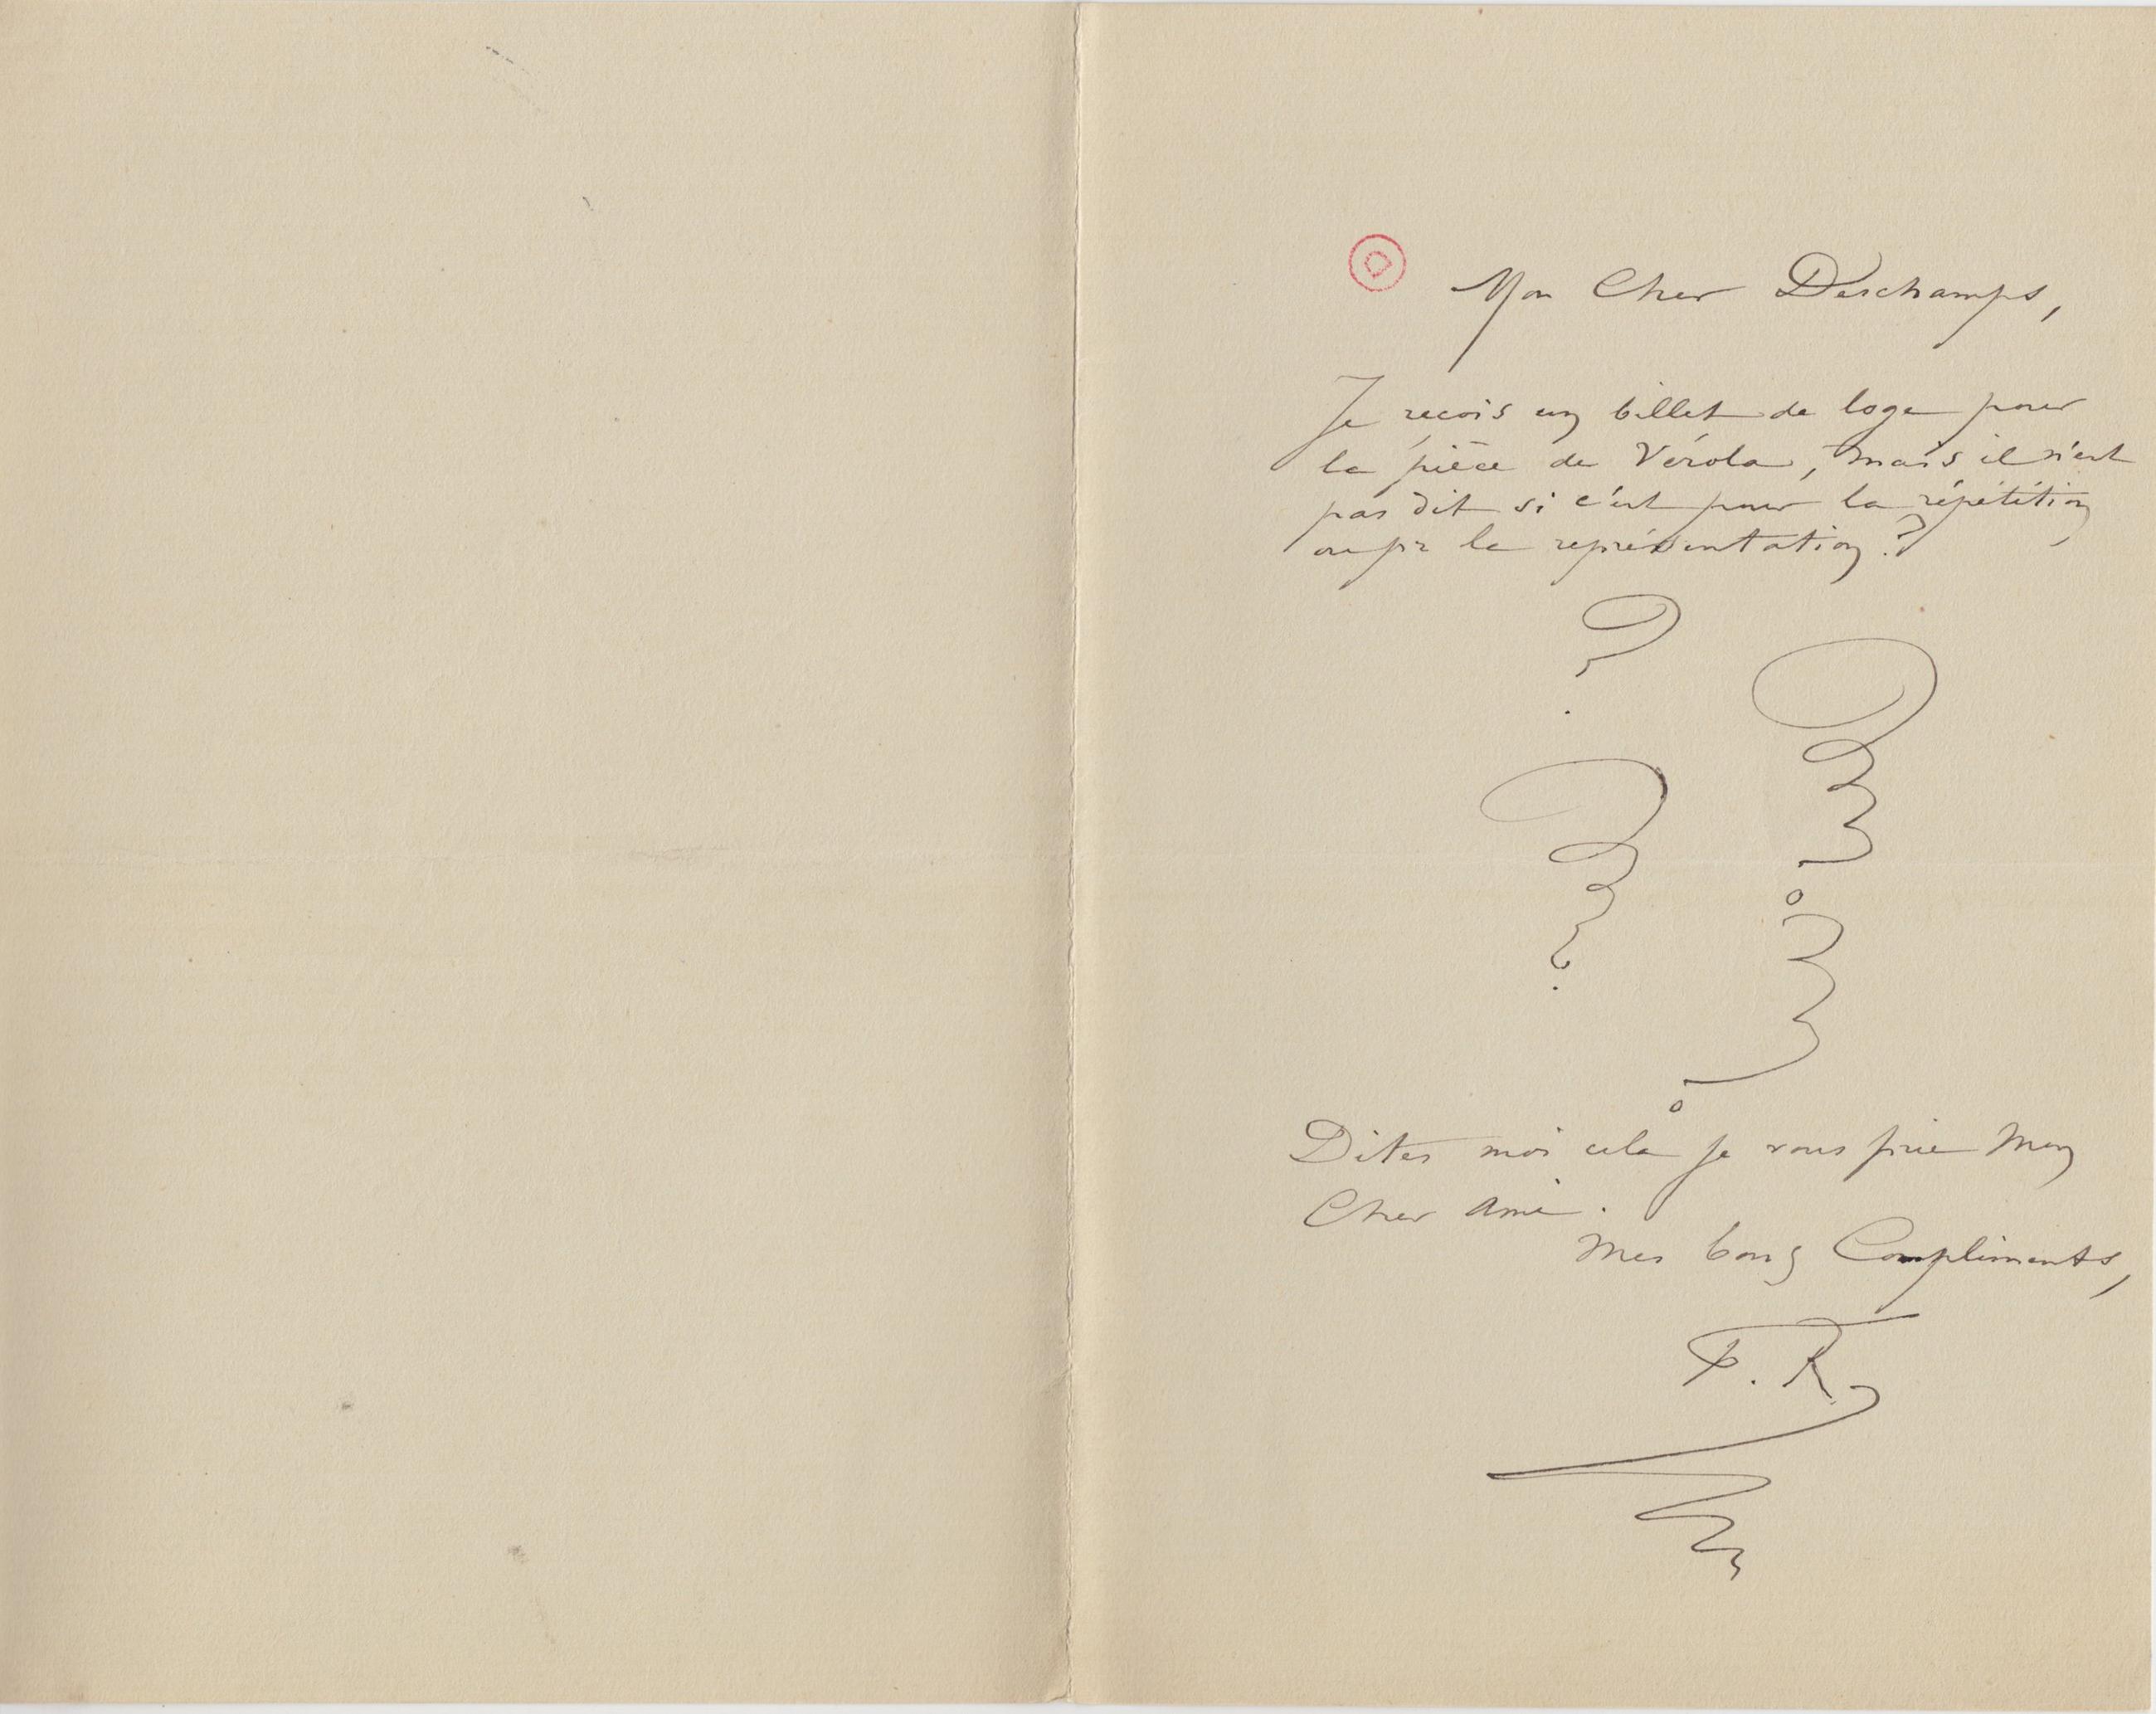 Mon Cher Deschamps,
Je recois un billet de loge pour
la pièce de Vérola, mais il n'est
pas dit si c'est pour la répétition
ou pr la représentation ?
?
?
?
?
Dites moi cela je vous prie Mon
Cher Ami.
Mes bons Compliments,
F. R.